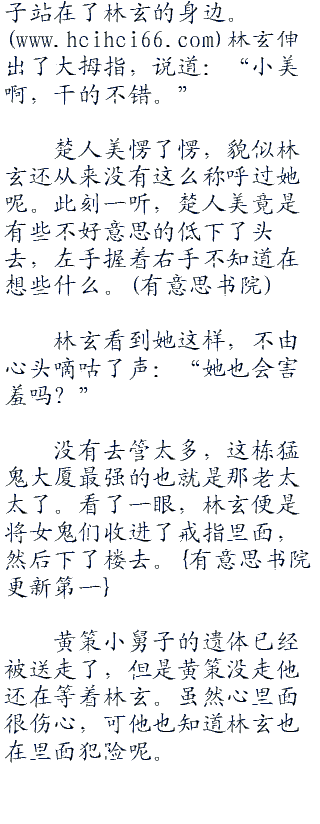 子站在了林玄的身边。
(www.hcihci66.com)林玄伸
出了大拇指，说道：“小美
啊，干的不错。”
楚人美愣了愣，貌似林
玄还从来没有这么称呼过她
呢。此刻一听，楚人美竟是
有些不好意思的低下了头
去，左手握着右手不知道在
想些什么。(有意思书院)
林玄看到她这样，不由
心头嘀咕了声：“她也会害
羞吗？”
没有去管太多，这栋猛
鬼大厦最强的也就是那老太
太了。看了一眼，林玄便是
将女鬼们收进了戒指里面，
然后下了楼去。{有意思书院
更新第一}
黄策小舅子的遗体已经
被送走了，但是黄策没走他
还在等着林玄。虽然心里面
很伤心，可他也知道林玄也
在里面犯险呢。